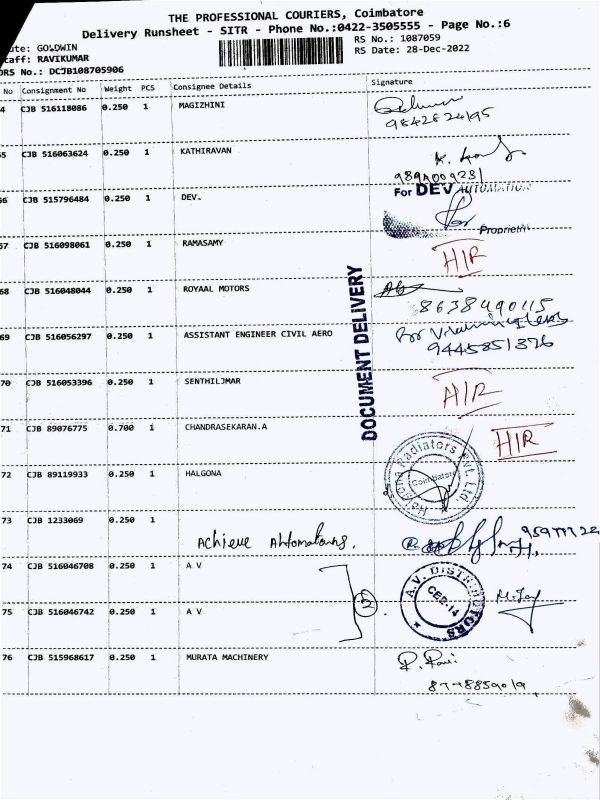 THE PROFESSIONAL COURIERS, Coimbatore
Delivery Runsheet - SITR - Phone No.:0422-3505555 - Page No.:6
ute: GOLDWIN
RS No.: 1087059
taff: RAVIKUMAR
RS Date: 28-Dec-2022
DRS No.: DCJB108705906
No Consignment No Weight PCS Consignee Details Signature
4 CJB 516118086 0.250 1 MAGIZHINI
65 CJB 516063624 0.250 1 KATHIRAVAN
66 CJB 515796484 0.250 1 DEV.
For DEV AUTOMATION
67 CJB 516098061 0.250 1 RAMASAMY
H/R
68 CJB 516048044 0.250 1 ROYAAL MOTORS
8638490115
69 CJB 516056297 0.250 1 ASSISTANT ENGINEER CIVIL AERO
9445851376
DOCUMENT DELIVERY
70 CJB 516053396 0.250 1 SENTHILJMAR
H/R
71 CJB 89076775 0.700 1 CHANDRASEKARAN.A
H/R
72 CJB 89119933 0.250 1 HALGONA
Radiators Pvt. Ltd.
Coimbatore
73 CJB 1233069 0.250 1
Achieve Automations.
74 CJB 516046708 0.250 1 A V
A.V. DISTRIBUTORS
CBE-14
2
75 CJB 516046742 0.250 1 A V
76 CJB 515968617 0.250 1 MURATA MACHINERY
R. Ravi